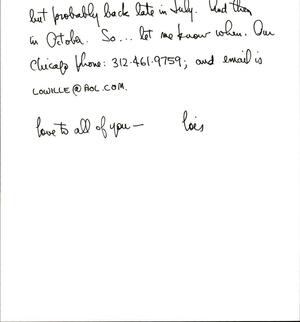 but probably back late in July. And then
in October. So... let me know when. Our
Chicago phone: 312-461-9759; and email is
LOWILLE@AOL.COM.
love to all of you— Lois